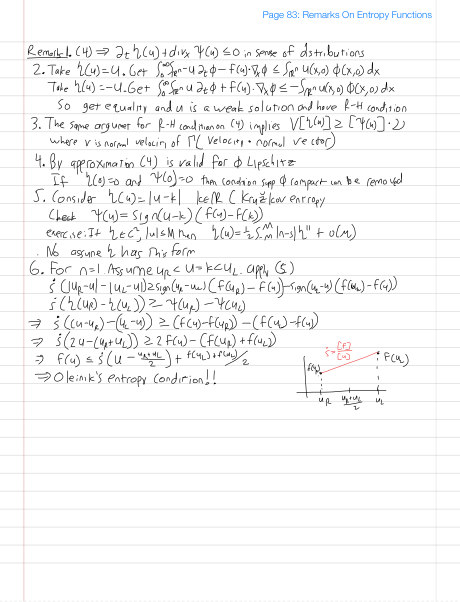 Page 83: Remarks On Entropy Functions
Remark 1. (4) ⇒ ∂t η(u) + divx Ψ(u) ≤ 0 in sense of distributions
2. Take η(u) = u. Get ∫₀^∞ ∫ℝⁿ -u ∂tφ - f(u)·∇xφ ≤ ∫ℝⁿ u(x,0) φ(x,0) dx
Take η(u) = -u. Get ∫₀^∞ ∫ℝⁿ u ∂tφ + f(u)·∇xφ ≤ -∫ℝⁿ u(x,0) φ(x,0) dx
So get equality and u is a weak solution and have R-H condition
3. The same argument for R-H condition on (4) implies V[η(u)] ≥ [Ψ(u)]·ν
where v is normal velocity of Γ (velocity • normal vector)
4. By approximation (4) is valid for φ Lipschitz
If η(0)=0 and Ψ(0)=0 then condition supp φ compact can be removed
5. Consider η(u) = |u-k| k∈ℝ (Kružkov entropy
Check Ψ(u) = sign(u-k)(f(u)-f(k))
exercise: If η∈C², |u|≤M then η(u) = ½∫₋M^M |n-s| η'' + o(M)
. NB assume η has this form
6. For n=1. Assume uR < u=k < uL. apply (5)
ṡ(|uR-u| - |uL-u|) ≥ sign(uR-u)(f(uR)-f(u)) - sign(uL-u)(f(uL)-f(u))
ṡ(η(uR) - η(uL)) ≥ Ψ(uR) - Ψ(uL)
⇒ ṡ((u-uR)-(uL-u)) ≥ (f(u)-f(uR)) - (f(uL)-f(u))
⇒ ṡ(2u-(uR+uL)) ≥ 2f(u) - (f(uR)+f(uL))
⇒ f(u) ≤ ṡ(u - (uR+uL)/2) + (f(uL)+f(uR))/2
⇒ Oleinik's entropy condition!!
ṡ = [F]/[u]
f(uR)
F(uL)
uR (uR+uL)/2 uL